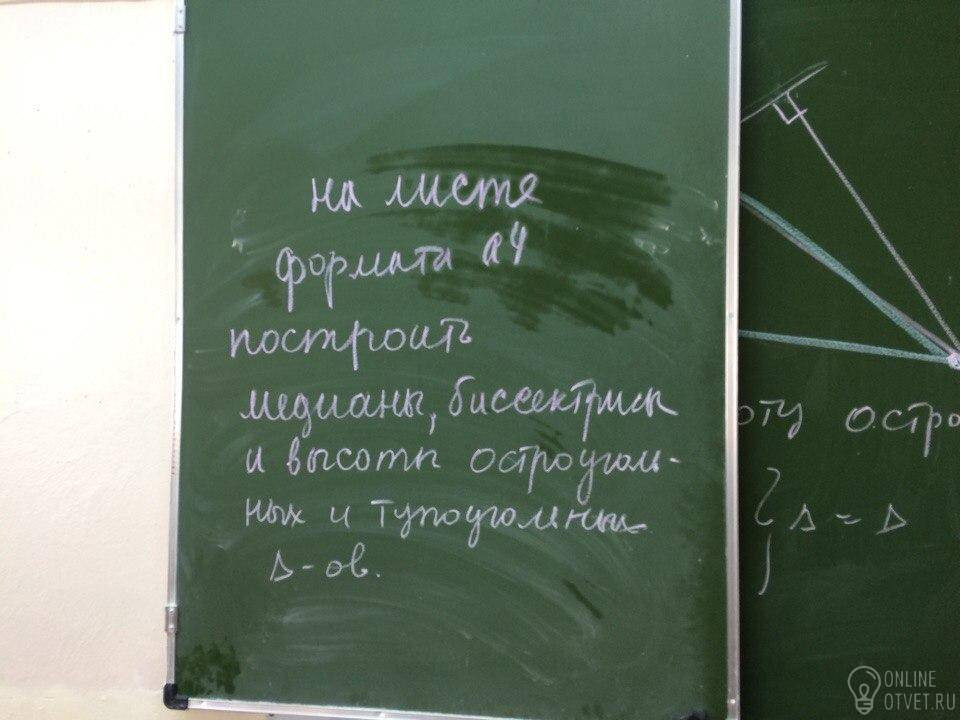 на листе
формата А4
построить
медианы, биссектрисы
и высоты остроуголь-
ных и тупоугольных
Δ-ов.
оту остро
Δ = Δ
ONLINE
OTVET.RU